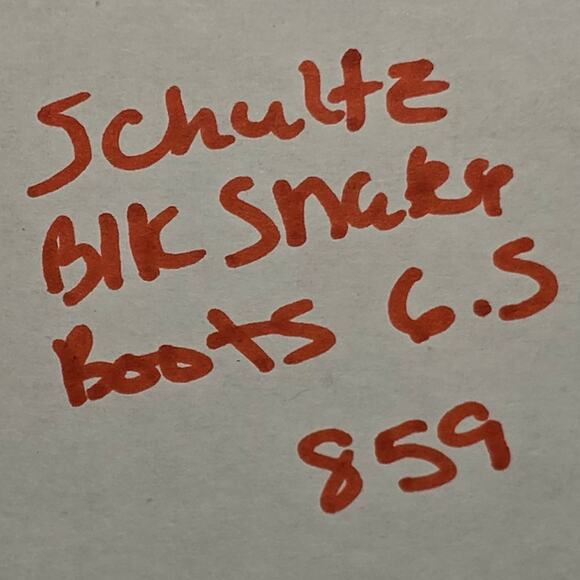 Schultz
Blk Snake
Boots 6.5
859